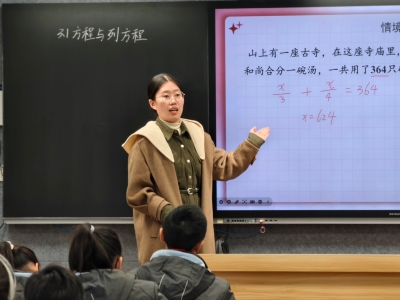 列方程与列方程
情境
山上有一座古寺，在这座寺庙里，
和尚合分一碗汤，一共用了364只
x/3 + x/4 = 364
x=624